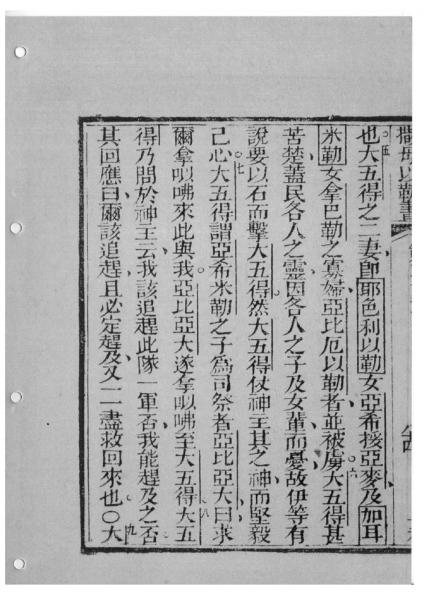 撒母以勒書
也大五得之二妻卽耶色利以勒女亞希挼亞麥及加耳
米勒女拿巴勒之寡婦亞比厄以勒者並被虜大五得甚
苦楚蓋民各人之靈因各人之子及女輩而憂故伊等有
說要以石而擊大五得然大五得仗神主其之神而堅毅
己心大五得謂亞希米勒之子爲司祭者亞比亞大曰求
爾拿𠸄咈來此與我亞比亞大遂拿𠸄咈至大五得大五
得乃問於神主云我該追趕此隊一軍否我能趕及之否
其回應曰爾該追趕且必定趕及又一一盡救回來也○大